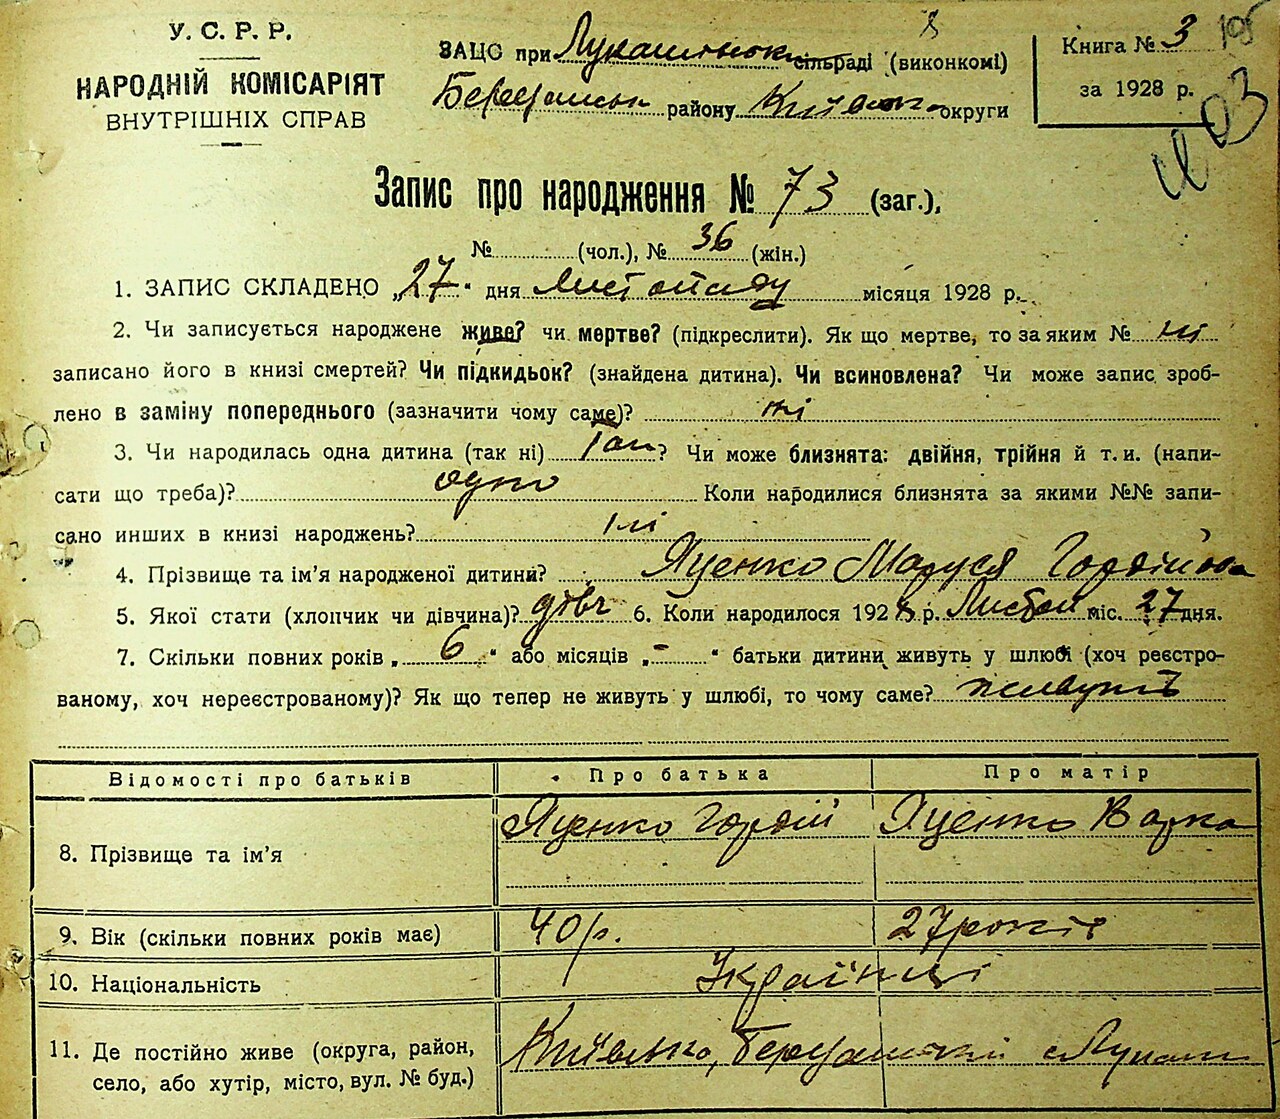 У. С. Р. Р.
НАРОДНІЙ КОМІСАРІЯТ
ВНУТРІШНІХ СПРАВ
ЗАЦС при сільраді (виконкомі)
району округи
Книга № 3
за 1928 р.
Запис про народження № 73 (заг.),
№ (чол.), № 36 (жін.)
1. ЗАПИС СКЛАДЕНО „27“ дня Листопаду місяця 1928 р.
2. Чи записується народжене живе? чи мертве? (підкреслити). Як що мертве, то за яким № ні
записано його в книзі смертей? Чи підкидьок? (знайдена дитина). Чи всиновлена? Чи може запис зроб-
лено в заміну попереднього (зазначити чому саме)? ні
3. Чи народилась одна дитина (так ні) Так? Чи може близнята: двійня, трійня й т. и. (напи-
сати що треба)? одно Коли народилися близнята за якими №№ запи-
сано инших в книзі народжень? ні
4. Прізвище та ім’я народженої дитини? Яценко Маруся Гордіївна
5. Якої стати (хлопчик чи дівчина)? дівч 6. Коли народилося 1928 р. Листоп міс. 27 дня.
7. Скільки повних років „ 6 “ або місяців „ - “ батьки дитини живуть у шлюбі (хоч реєстро-
ваному, хоч нереєстрованому)? Як що тепер не живуть у шлюбі, то чому саме? живуть
Відомості про батьків Про батька Про матір
8. Прізвище та ім’я Яценко Гордій Яценко Варка
9. Вік (скільки повних років має) 40 р. 27 років
10. Національність Українці
11. Де постійно живе (округа, район,
село, або хутір, місто, вул. № буд.) Київська,